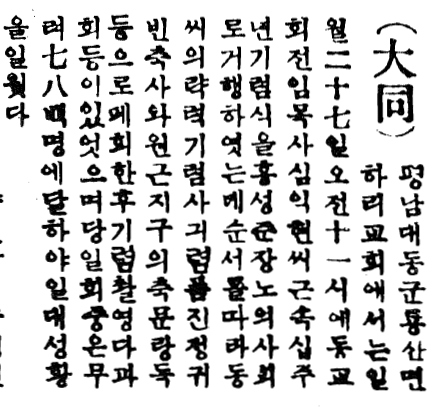 (大同)
평남대동군룡산면
하리교회애서는일
월二十七일오전十一시에동교
회전임목사심익현씨근속십주
년기렴식을홍성쥰장노의사회
로거행하엿는데순서를따라동
씨의략력기렴사긔렴품진정귀
빈축사와원근지구의축문랑독
등으로페회한후기렴촬영다과
회등이잇엇으며당일회즁은무
려七八백명에달하야일대성황
을일웟다